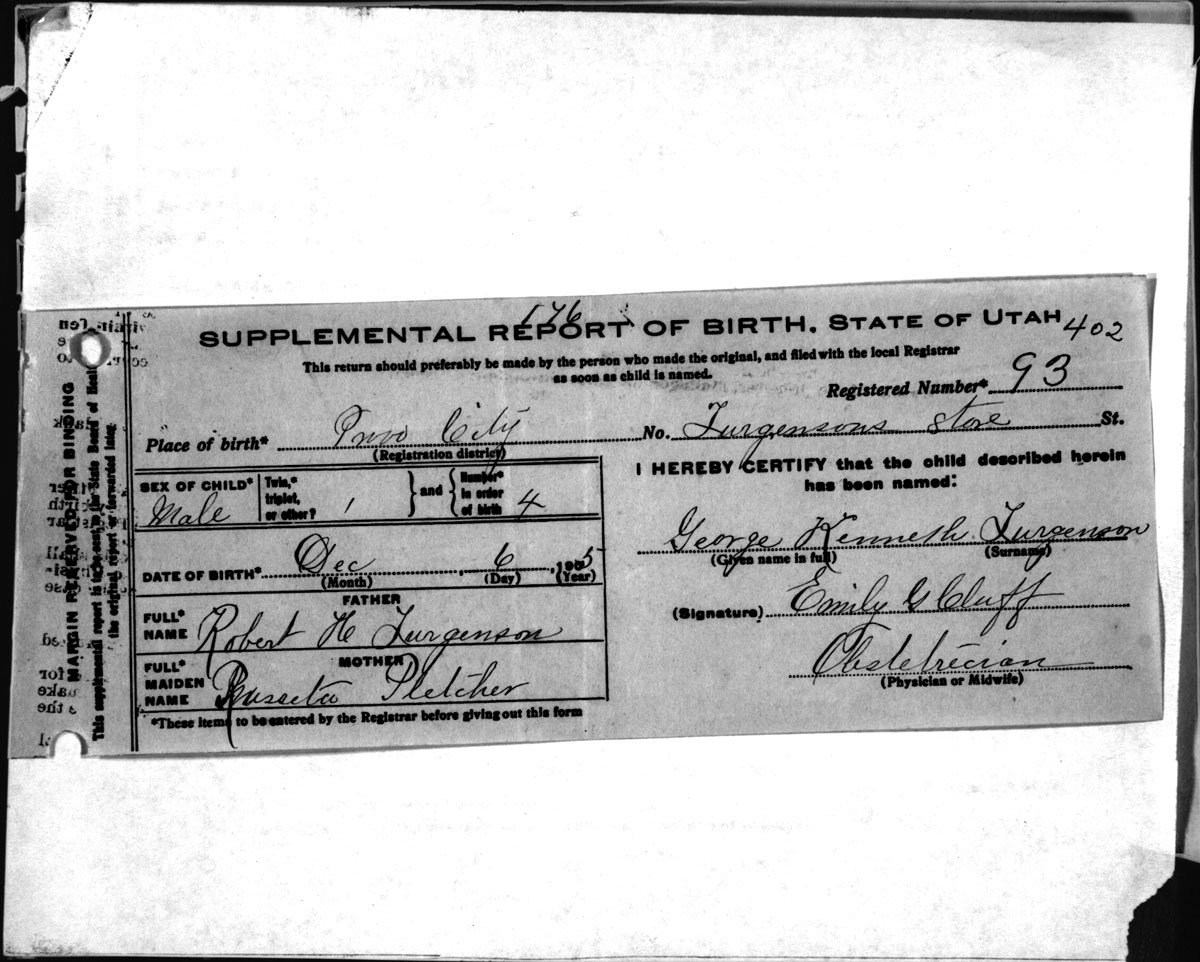 176
SUPPLEMENTAL REPORT OF BIRTH. STATE OF UTAH 402
This return should preferably be made by the person who made the original, and filed with the local Registrar
as soon as child is named.
Registered Number* 93
Place of birth* Provo City No. Jurgensons Store St.
(Registration district)
SEX OF CHILD* Male
Twin,* triplet, or other? 1 and Number* in order of birth 4
DATE OF BIRTH* Dec 6, 1905
(Month) (Day) (Year)
FATHER
FULL* NAME Robert H Jurgenson
MOTHER
FULL* MAIDEN NAME Pletcher
*These items to be entered by the Registrar before giving out this form
I HEREBY CERTIFY that the child described herein
has been named:
George Kenneth Jurgenson
(Given name in full) (Surname)
(Signature) Emily G Cluff
Obstetrician
(Physician or Midwife)
MARGIN RESERVED FOR BINDING
This supplemental report is to be sent to the State Board of Health
the original report is forwarded later.